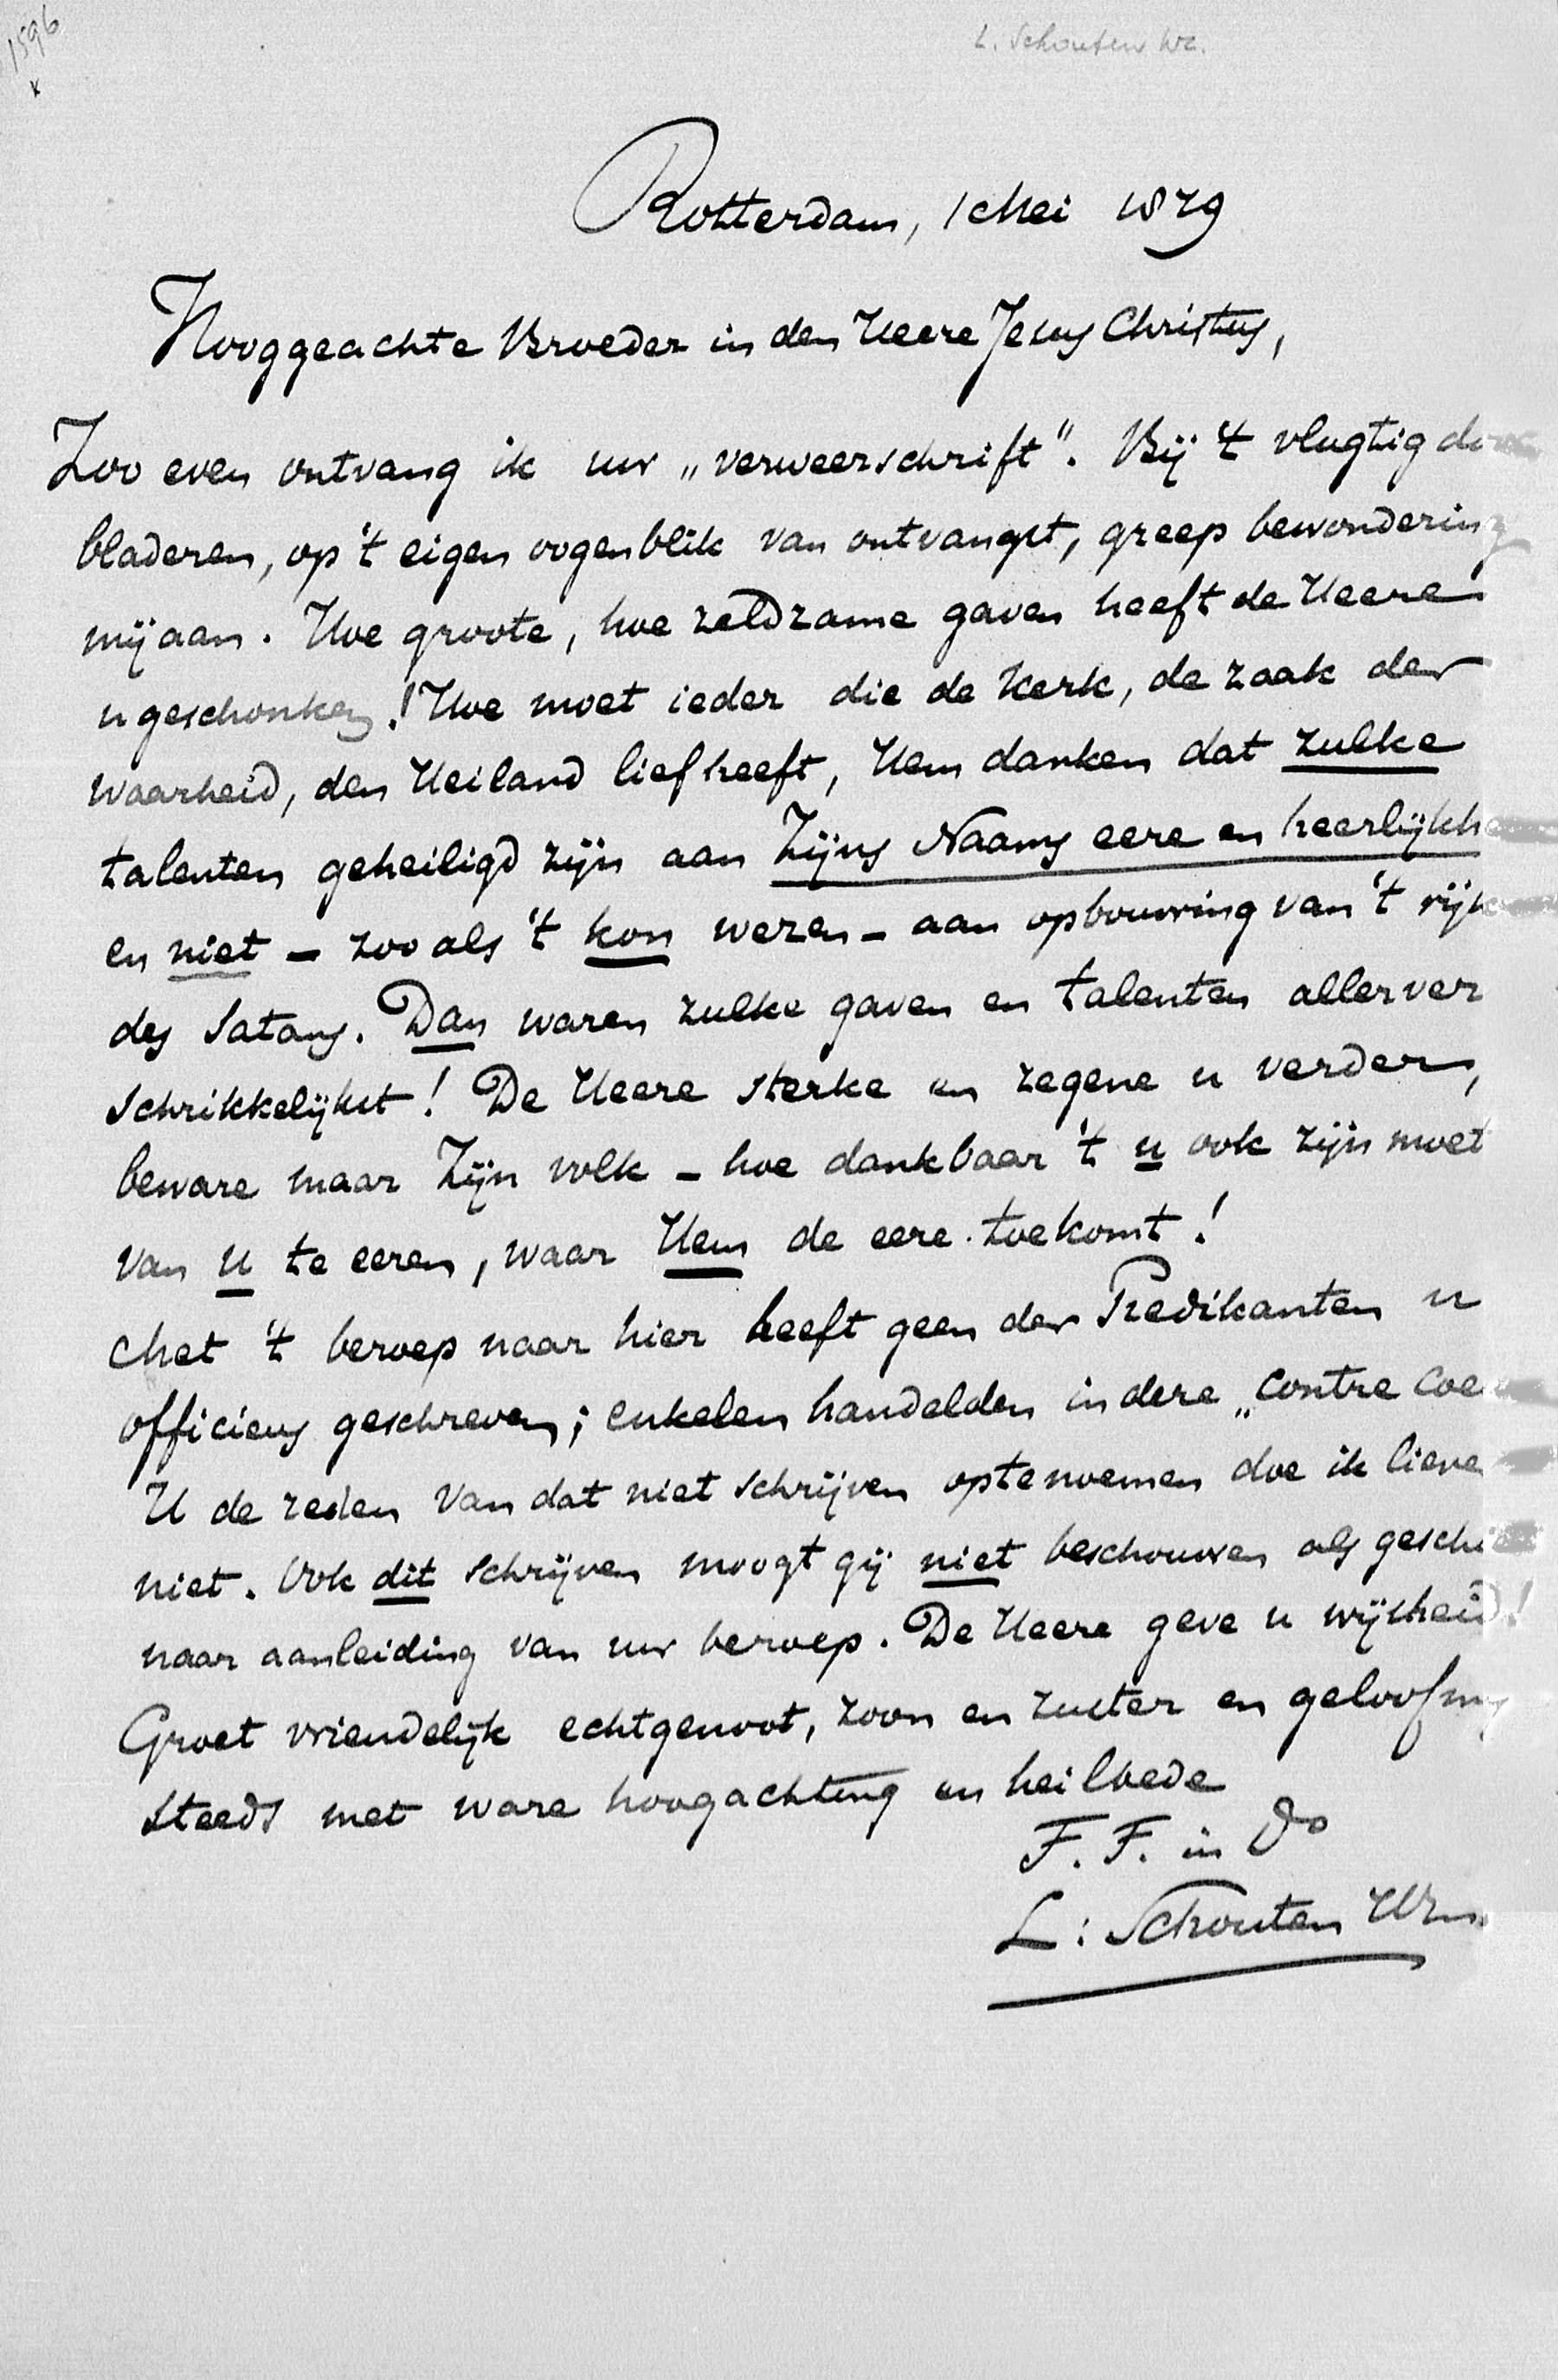 1596
L. Schouten Wz.
Rotterdam, 1 Mei 1879
Hooggeachte Broeder in den Heere Jesus Christus,
Zoo even ontvang ik uw „verweerschrift". Bij 't vlugtig do
bladeren, op 't eigen oogenblik van ontvangst, greep bewondering
mij aan. Hoe groote, hoe zeldzame gaven heeft de Heere
u geschonken! Hoe moet ieder die de kerk, de zaak der
waarheid, den Heiland liefheeft, Hem danken dat zulke
talenten geheiligd zijn aan Zijns Naams eere en heerlijkhe
en niet – zoo als 't kon wezen – aan opbouwing van 't rijk
des Satans. Dan waren zulke gaven en talenten allerver
schrikkelijkst! De Heere sterke en zegene u verder,
beware maar Zijn volk – hoe dankbaar 't u ook zijn moet
van u te eeren, waar Hem de eere toekomt!
Met 't beroep naar hier heeft geen der Predikanten u
officieus geschreven; enkelen handelden in deze „contre coe
U de reden van dat niet schrijven op te noemen doe ik lieve
niet. Ook dit schrijven moogt gij niet beschouwen als geschi
naar aanleiding van uw beroep. De Heere geve u wijsheid!
Groet vriendelijk echtgenoot, zoon en zuster en geloof mij
steeds met ware hoogachting en heilbede
F. F. in Do
L: Schouten HZn.